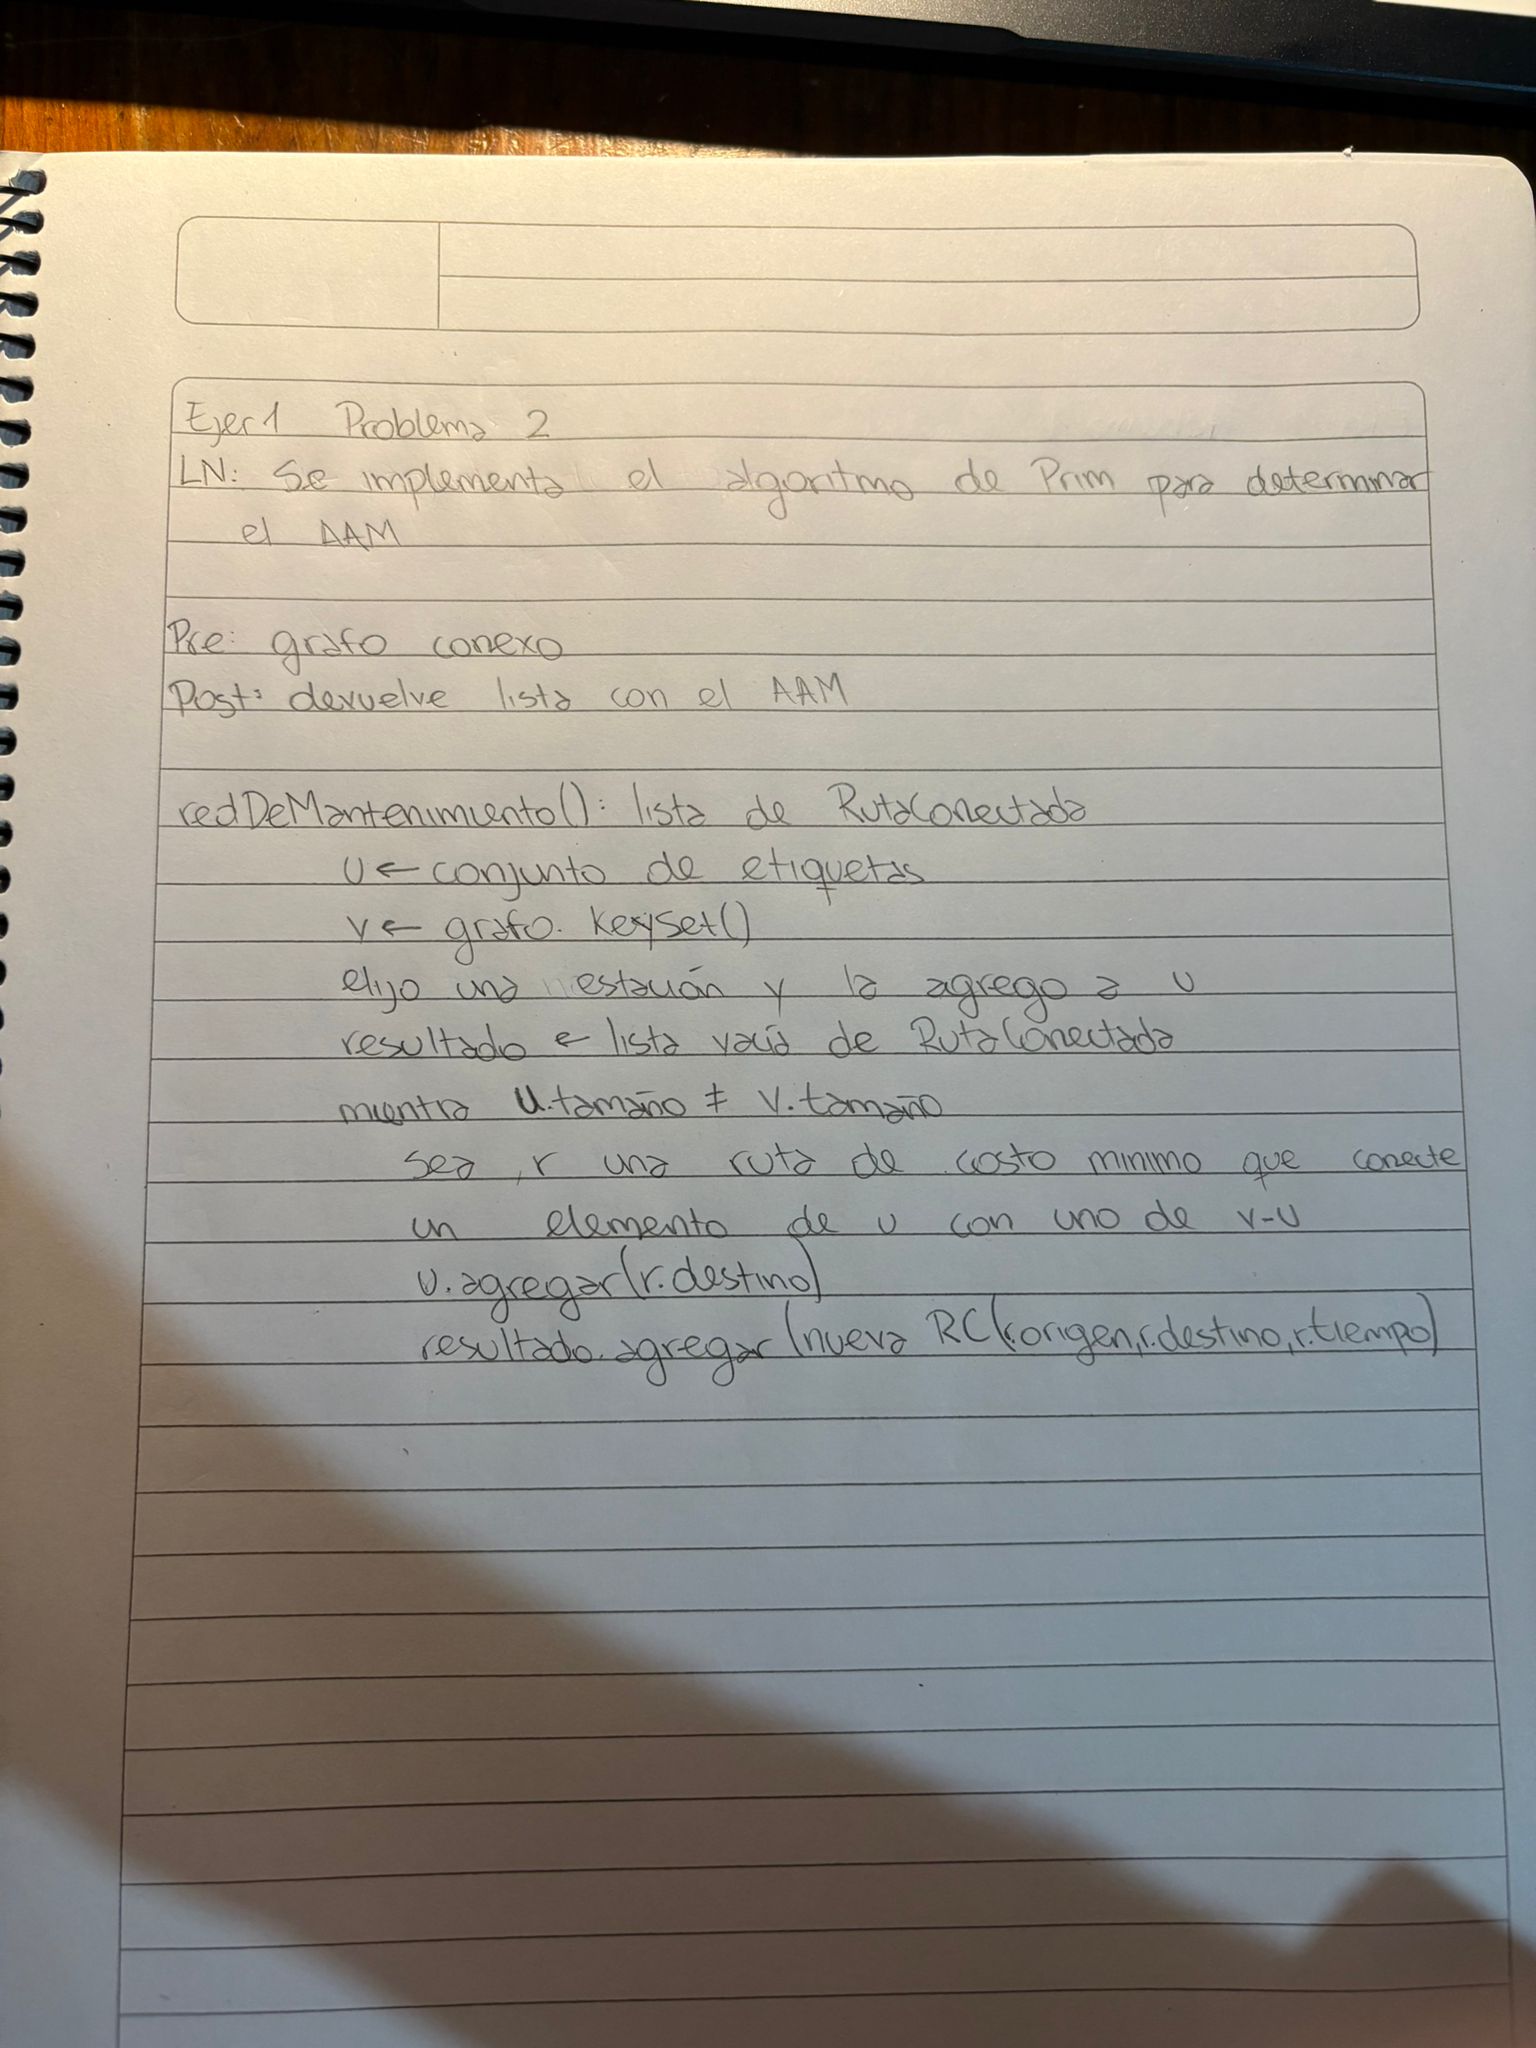 Ejer 1 Problema 2
LN: Se implementa el algoritmo de Prim para determinar
el AAM
Pre: grafo conexo
Post: devuelve lista con el AAM
redDeMantenimiento(): lista de RutaConectada
U ← conjunto de etiquetas
V ← grafo. KeySet()
elijo una estación y la agrego a U
resultado ← lista vacia de RutaConectada
mientra U.tamaño ≠ V.tamaño
sea r una ruta de costo minimo que conecte
un elemento de U con uno de V-U
U.agregar(r.destino)
resultado.agregar(nueva RC(r.origen, r.destino, r.tiempo)